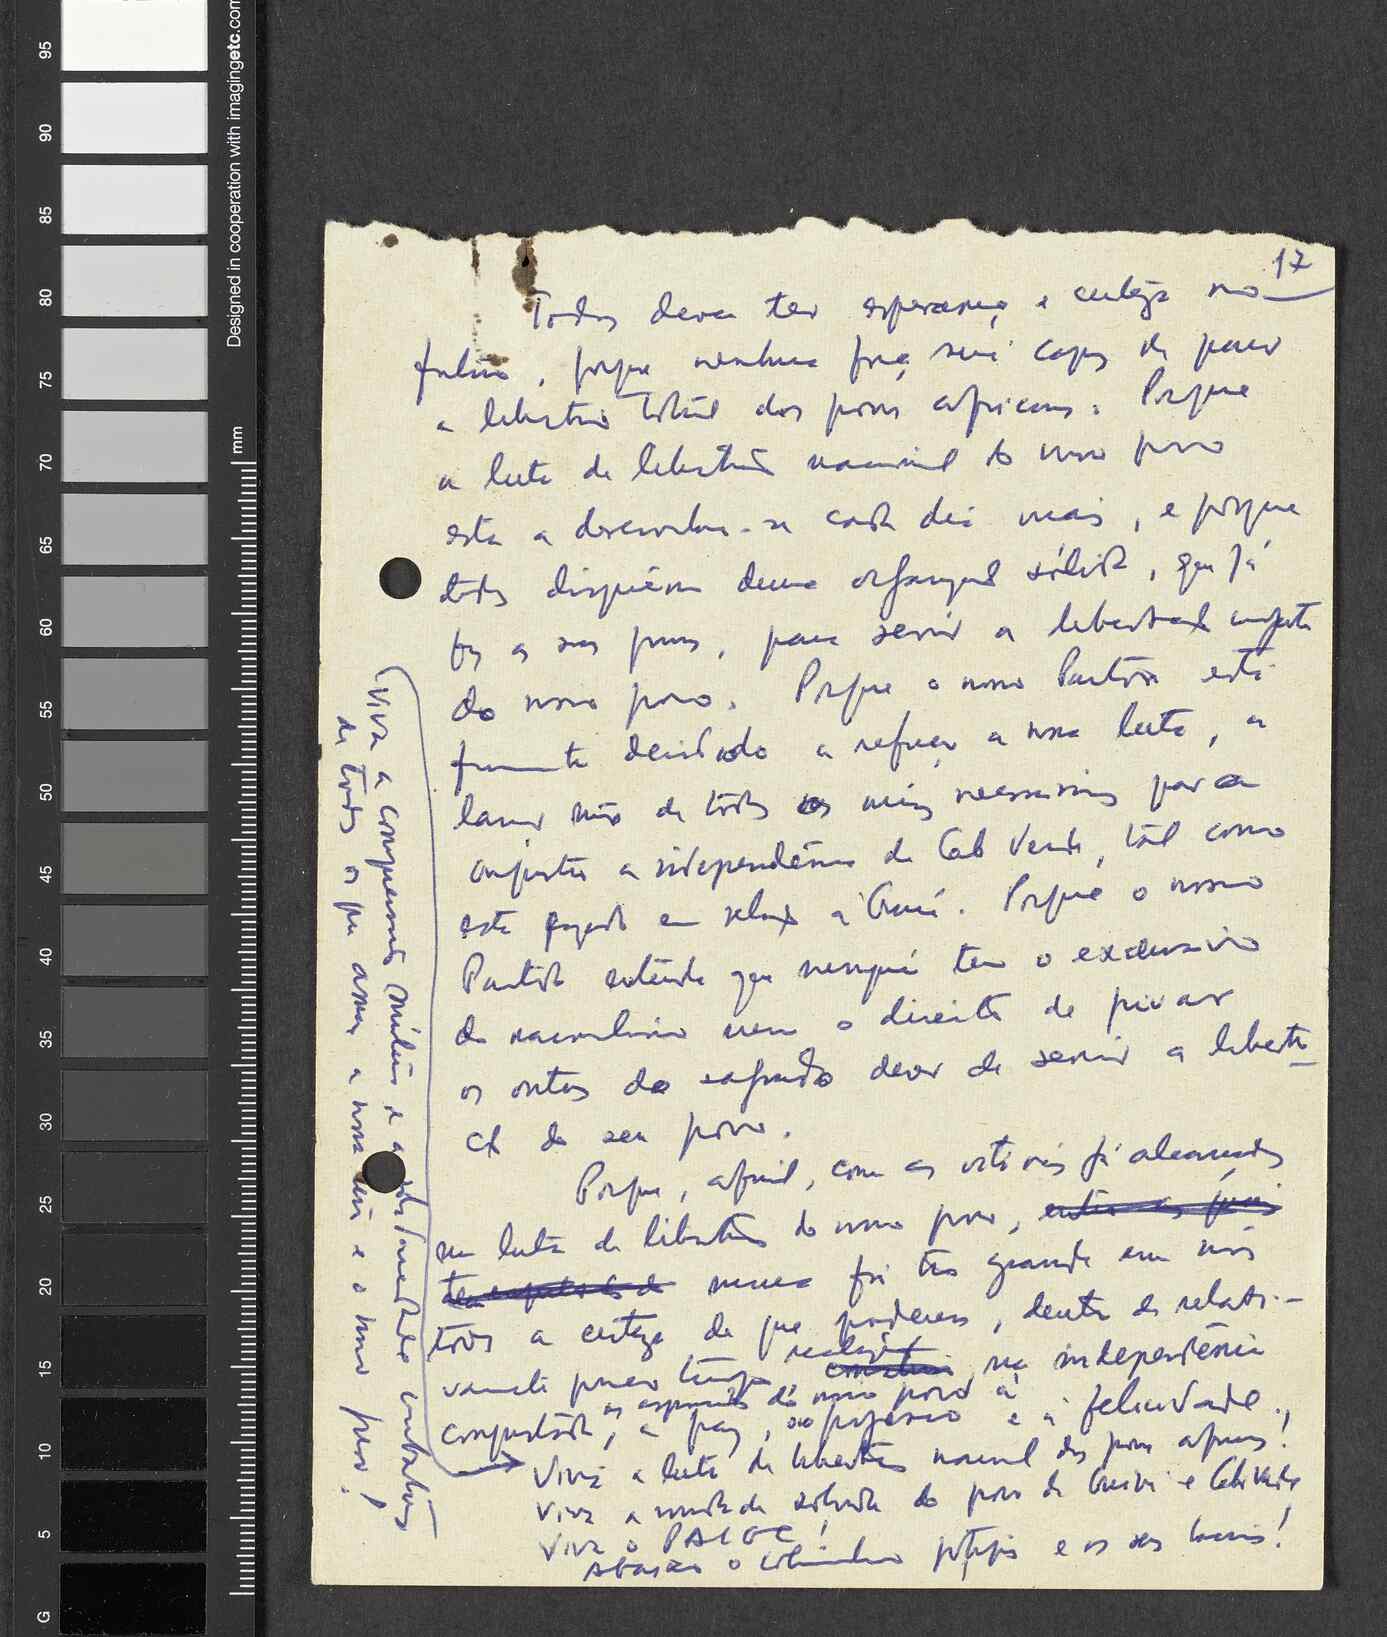 17
Todos devem ter esperança e certeza no
futuro, porque nenhuma força será capaz de parar
a libertação total dos povos africanos. Porque
a luta de libertação nacional do nosso povo
esta a desenvolver-se cada dia mais, e porque
todos dispõem duma organização sólida, que já
fez as suas provas, para servir a libertação
do nosso povo. Porque o nosso Partido está
firmemente decidido a reforçar a nossa luta, a
lançar mão de todos os meios necessários para
conquistar a independência de Cabo Verde, tal como
esta fazendo em relação à Guiné. Porque o nosso
Partido entende que ninguém tem o exclusivo
do nacionalismo nem o direito de privar
os outros do sagrado dever de servir a liberta-
ção do seu povo.
Porque, afinal, com as vitórias já alcançadas
na luta de libertação do nosso povo, entre as quais
nunca foi tão grande em nós
todos a certeza de que poderemos, dentro de relati-
vamente pouco tempo, realizar na independência
conquistada, as aspirações do nosso povo à paz, ao progresso e à felicidade.
Viva a luta de libertação nacional dos povos africanos!
Viva a unidade sólida do povo da Guiné e Cabo Verde
Viva o PAIGC!
Abaixo o colonialismo português e os seus lacaios!
Viva a compreensão mútua e a solidariedade combativa
de todos os que amam a nossa terra e o nosso povo!
95
90
85
80
75
70
65
60
55
50
45
40
35
30
25
20
15
10
5
G
mm
Designed in cooperation with imagingetc.com